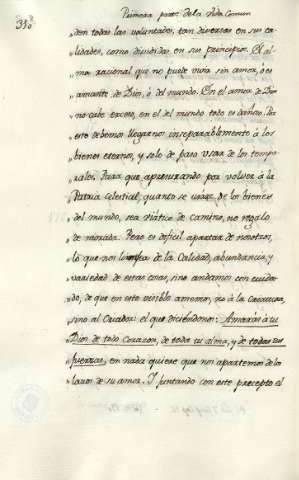 310.
Primera parte de la Vida Comun
„den todas las voluntades, tan diversas en sus ca-
„lidades, como divididas en sus principios. El al-
„ma racional que no puede vivir sin amor, ó es
„amante de Dios, ó del mundo. En el amor de Dios
„no cabe exceso, en el del mundo todo es dañoso. Por
„esto debemos llegarnos inseparablemente à los
„bienes eternos, y solo de paso usar de los tempo-
„rales. Para que apresurando por volver à la
„Patria celestial, quanto se usáre de los bienes
„del mundo, sea viatico de camino, no regalo
„de morada. Pero es dificil apartar de nosotros,
„lo que nos de la calidad, abundancia, y
„variedad de estas cosas, sino andamos con cuida-
„do, de que en esto visible amemos, no à la Creatura,
„sino al Criador: el que diciendonos: Amarás à tu
„Dios de todo corazon, de toda tu alma, y de todas tus
„fuerzas, en nada quiere que nos apartemos de los
„lazos de su amor. Y juntando con este precepto el